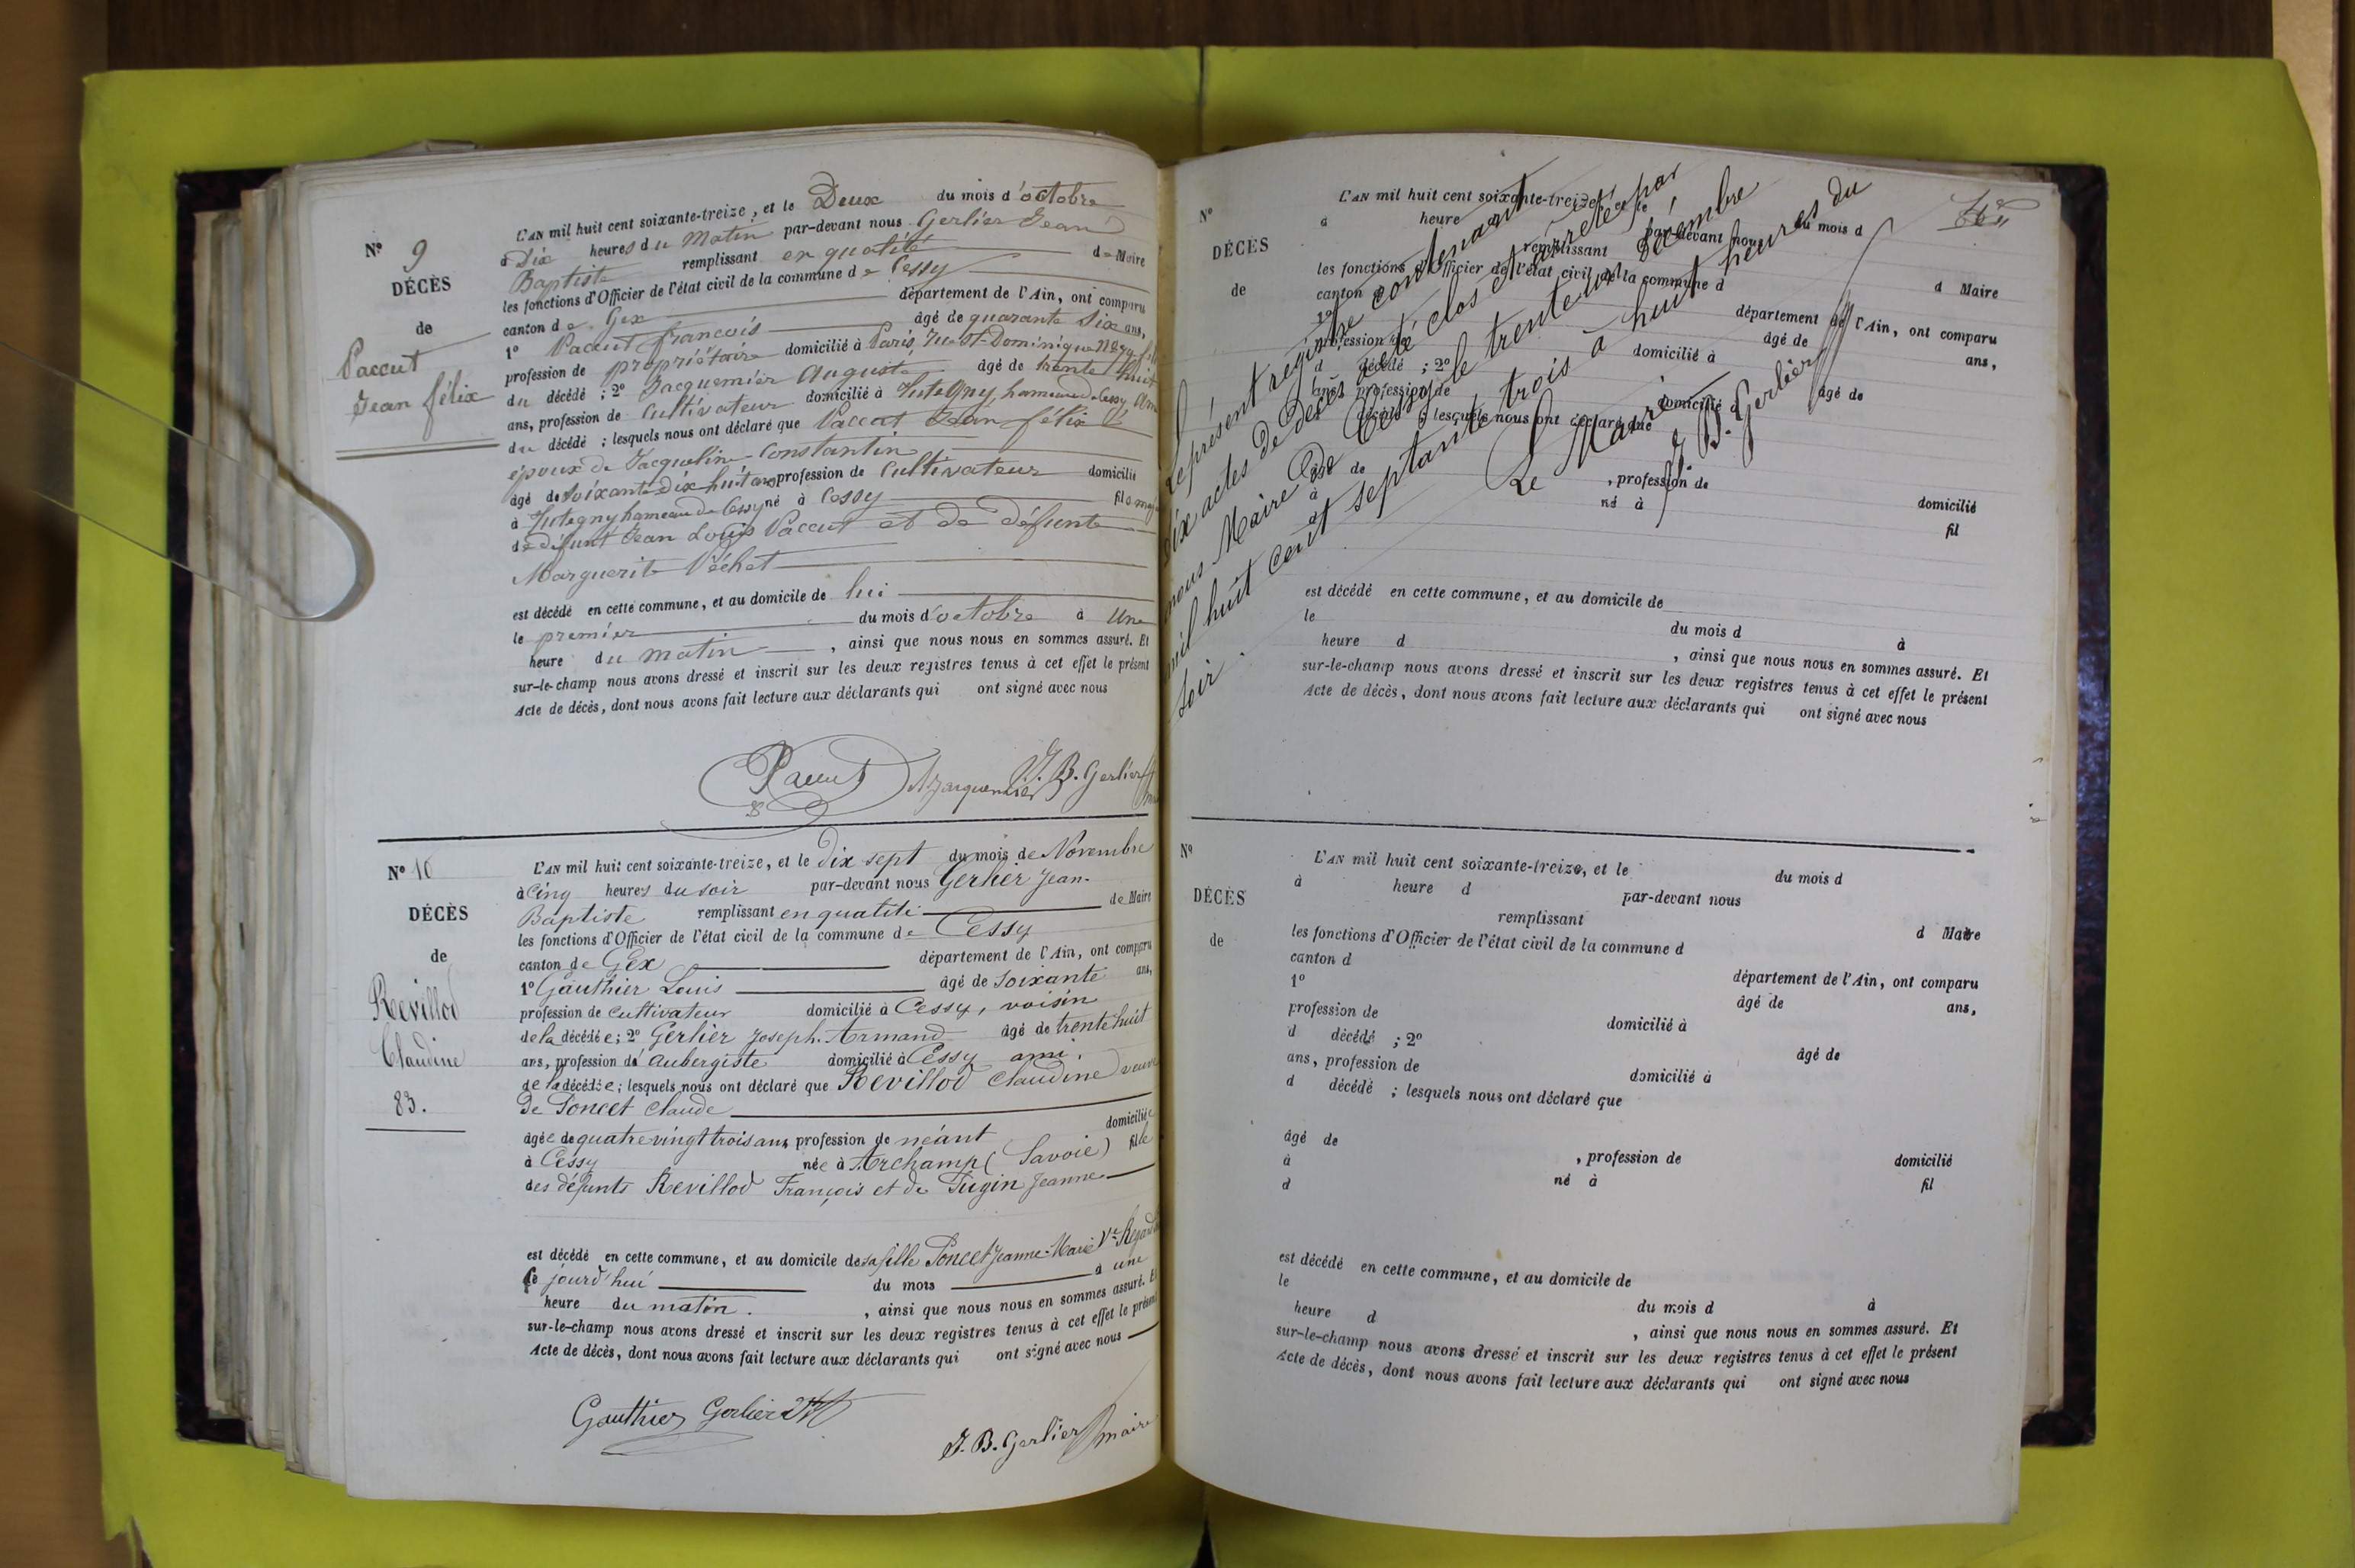 N° 9
DÉCÈS
de
Paccut
Jean félix
L'AN mil huit cent soixante-treize, et le Deux du mois d'octobre
à Dix heures du Matin par-devant nous Gerlier Jean
Baptiste remplissant en qualité de Maire
les fonctions d'Officier de l'état civil de la commune de Cessy
canton de Gex département de l'Ain, ont comparu
1° Paccut francois âgé de quarante Six ans,
profession de propriétaire domicilié à Paris, rue St-Dominique N°
du décédé ; 2° Jacquemier Auguste âgé de trente huit
ans, profession de Cultivateur domicilié à Tutegny, hameau de Cessy
du décédé ; lesquels nous ont déclaré que Paccut Jean félix
époux de Jacqueline Constantin
âgé de Soixante dix huit ans profession de Cultivateur domicilié
à Tutegny hameau de Cessy né à Cessy fils
de défunt Jean Louis Paccut et de défunte
Marguerite Péchet
est décédé en cette commune, et au domicile de lui
le premier du mois d'octobre à Une
heure du matin, ainsi que nous nous en sommes assuré. Et
sur-le-champ nous avons dressé et inscrit sur les deux registres tenus à cet effet le présent
Acte de décès, dont nous avons fait lecture aux déclarants qui ont signé avec nous
Paccut Jacquemier J. B. Gerlier
N° 10
DÉCÈS
de
Revillod
Claudine
83.
L'AN mil huit cent soixante-treize, et le dix sept du mois de Novembre
à Cinq heures du soir par-devant nous Gerlier Jean-
Baptiste remplissant en qualité de Maire
les fonctions d'Officier de l'état civil de la commune de Cessy
canton de Gex département de l'Ain, ont comparu
1° Gauthier Louis âgé de Soixante ans,
profession de Cultivateur domicilié à Cessy, voisin
de la décédée; 2° Gerlier Joseph-Armand âgé de trente huit
ans, profession de Aubergiste domicilié à Cessy ami,
de la décédée; lesquels nous ont déclaré que Revillod Claudine veuve
De Poncet Claude
âgée de quatre vingt trois ans, profession de néant domiciliée
à Cessy née à Archamp (Savoie) fille
des défunts Revillod François et de Jeanne
est décédé en cette commune, et au domicile de sa fille Poncet Jeanne-Marie Ve
Ce jourd'hui du mois à une
heure du matin. , ainsi que nous nous en sommes assuré. Et
sur-le-champ nous avons dressé et inscrit sur les deux registres tenus à cet effet le présent
Acte de décès, dont nous avons fait lecture aux déclarants qui ont signé avec nous
Gauthier Gerlier
J. B. Gerlier maire
Le présent registre contenant
dix actes de Décès a été clos et arrêté par
nous Maire de Cessy le trente un décembre
mil huit cent septante trois à huit heures du
soir.
Le Maire
J. B. Gerlier
N°
DÉCÈS
de
L'AN mil huit cent soixante-treize, et le du mois d
à heure d par-devant nous
remplissant d Maire
les fonctions d'Officier de l'état civil de la commune d
canton d département de l'Ain, ont comparu
1° âgé de ans,
profession de domicilié à
d décédé ; 2° âgé de
ans, profession de domicilié à
d décédé ; lesquels nous ont déclaré que
âgé de , profession de domicilié
à né à fil
d
est décédé en cette commune, et au domicile de
le du mois d à
heure d , ainsi que nous nous en sommes assuré. Et
sur-le-champ nous avons dressé et inscrit sur les deux registres tenus à cet effet le présent
Acte de décès, dont nous avons fait lecture aux déclarants qui ont signé avec nous
N°
DÉCÈS
de
L'AN mil huit cent soixante-treize, et le du mois d
à heure d par-devant nous
remplissant d Maire
les fonctions d'Officier de l'état civil de la commune d
canton d département de l'Ain, ont comparu
1° âgé de ans,
profession de domicilié à
d décédé ; 2° âgé de
ans, profession de domicilié à
d décédé ; lesquels nous ont déclaré que
âgé de , profession de domicilié
à né à fil
d
est décédé en cette commune, et au domicile de
le du mois d à
heure d , ainsi que nous nous en sommes assuré. Et
sur-le-champ nous avons dressé et inscrit sur les deux registres tenus à cet effet le présent
Acte de décès, dont nous avons fait lecture aux déclarants qui ont signé avec nous